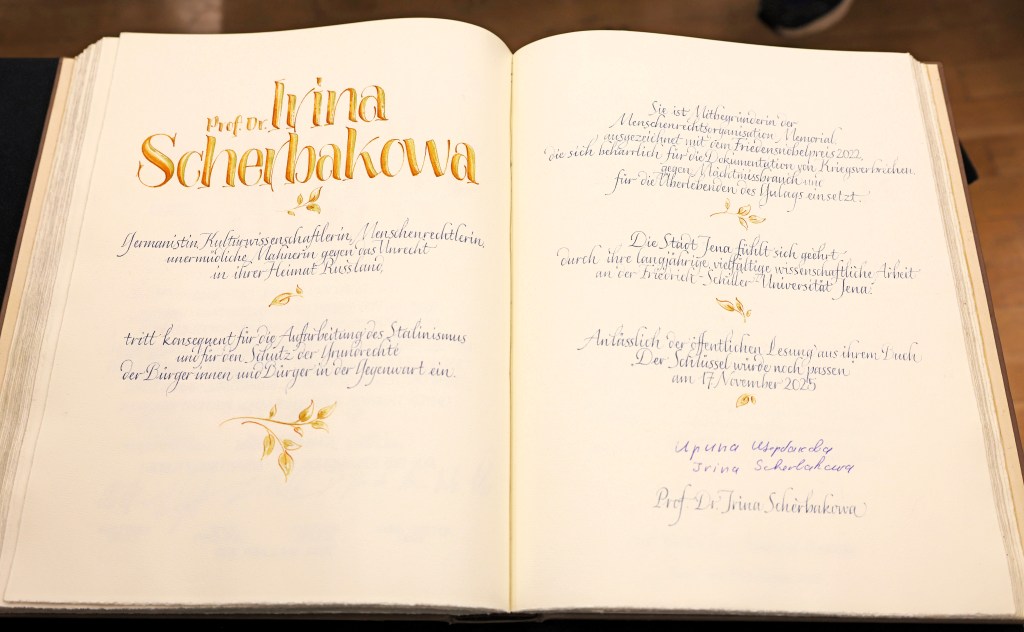 Prof. Dr. Irina
Scherbakowa
Germanistin, Kulturwissenschaftlerin, Menschenrechtlerin,
unermüdliche Mahnerin gegen das Unrecht
in ihrer Heimat Russland,
tritt konsequent für die Aufarbeitung des Stalinismus
und für den Schutz der Grundrechte
der Bürgerinnen und Bürger in der Gegenwart ein.
Sie ist Mitbegründerin der
Menschenrechtsorganisation Memorial,
ausgezeichnet mit dem Friedensnobelpreis 2022,
die sich beharrlich für die Dokumentation von Kriegsverbrechen
gegen Machtmissbrauch und
für die Überlebenden des Gulags einsetzt.
Die Stadt Jena fühlt sich geehrt
durch ihre langjährige, vielfältige wissenschaftliche Arbeit
an der Friedrich-Schiller-Universität Jena.
Anlässlich der öffentlichen Lesung aus ihrem Buch
„Der Schlüssel würde noch passen“
am 17. November 2025
Ирина Щербакова
Irina Scherbakowa
Prof. Dr. Irina Scherbakowa